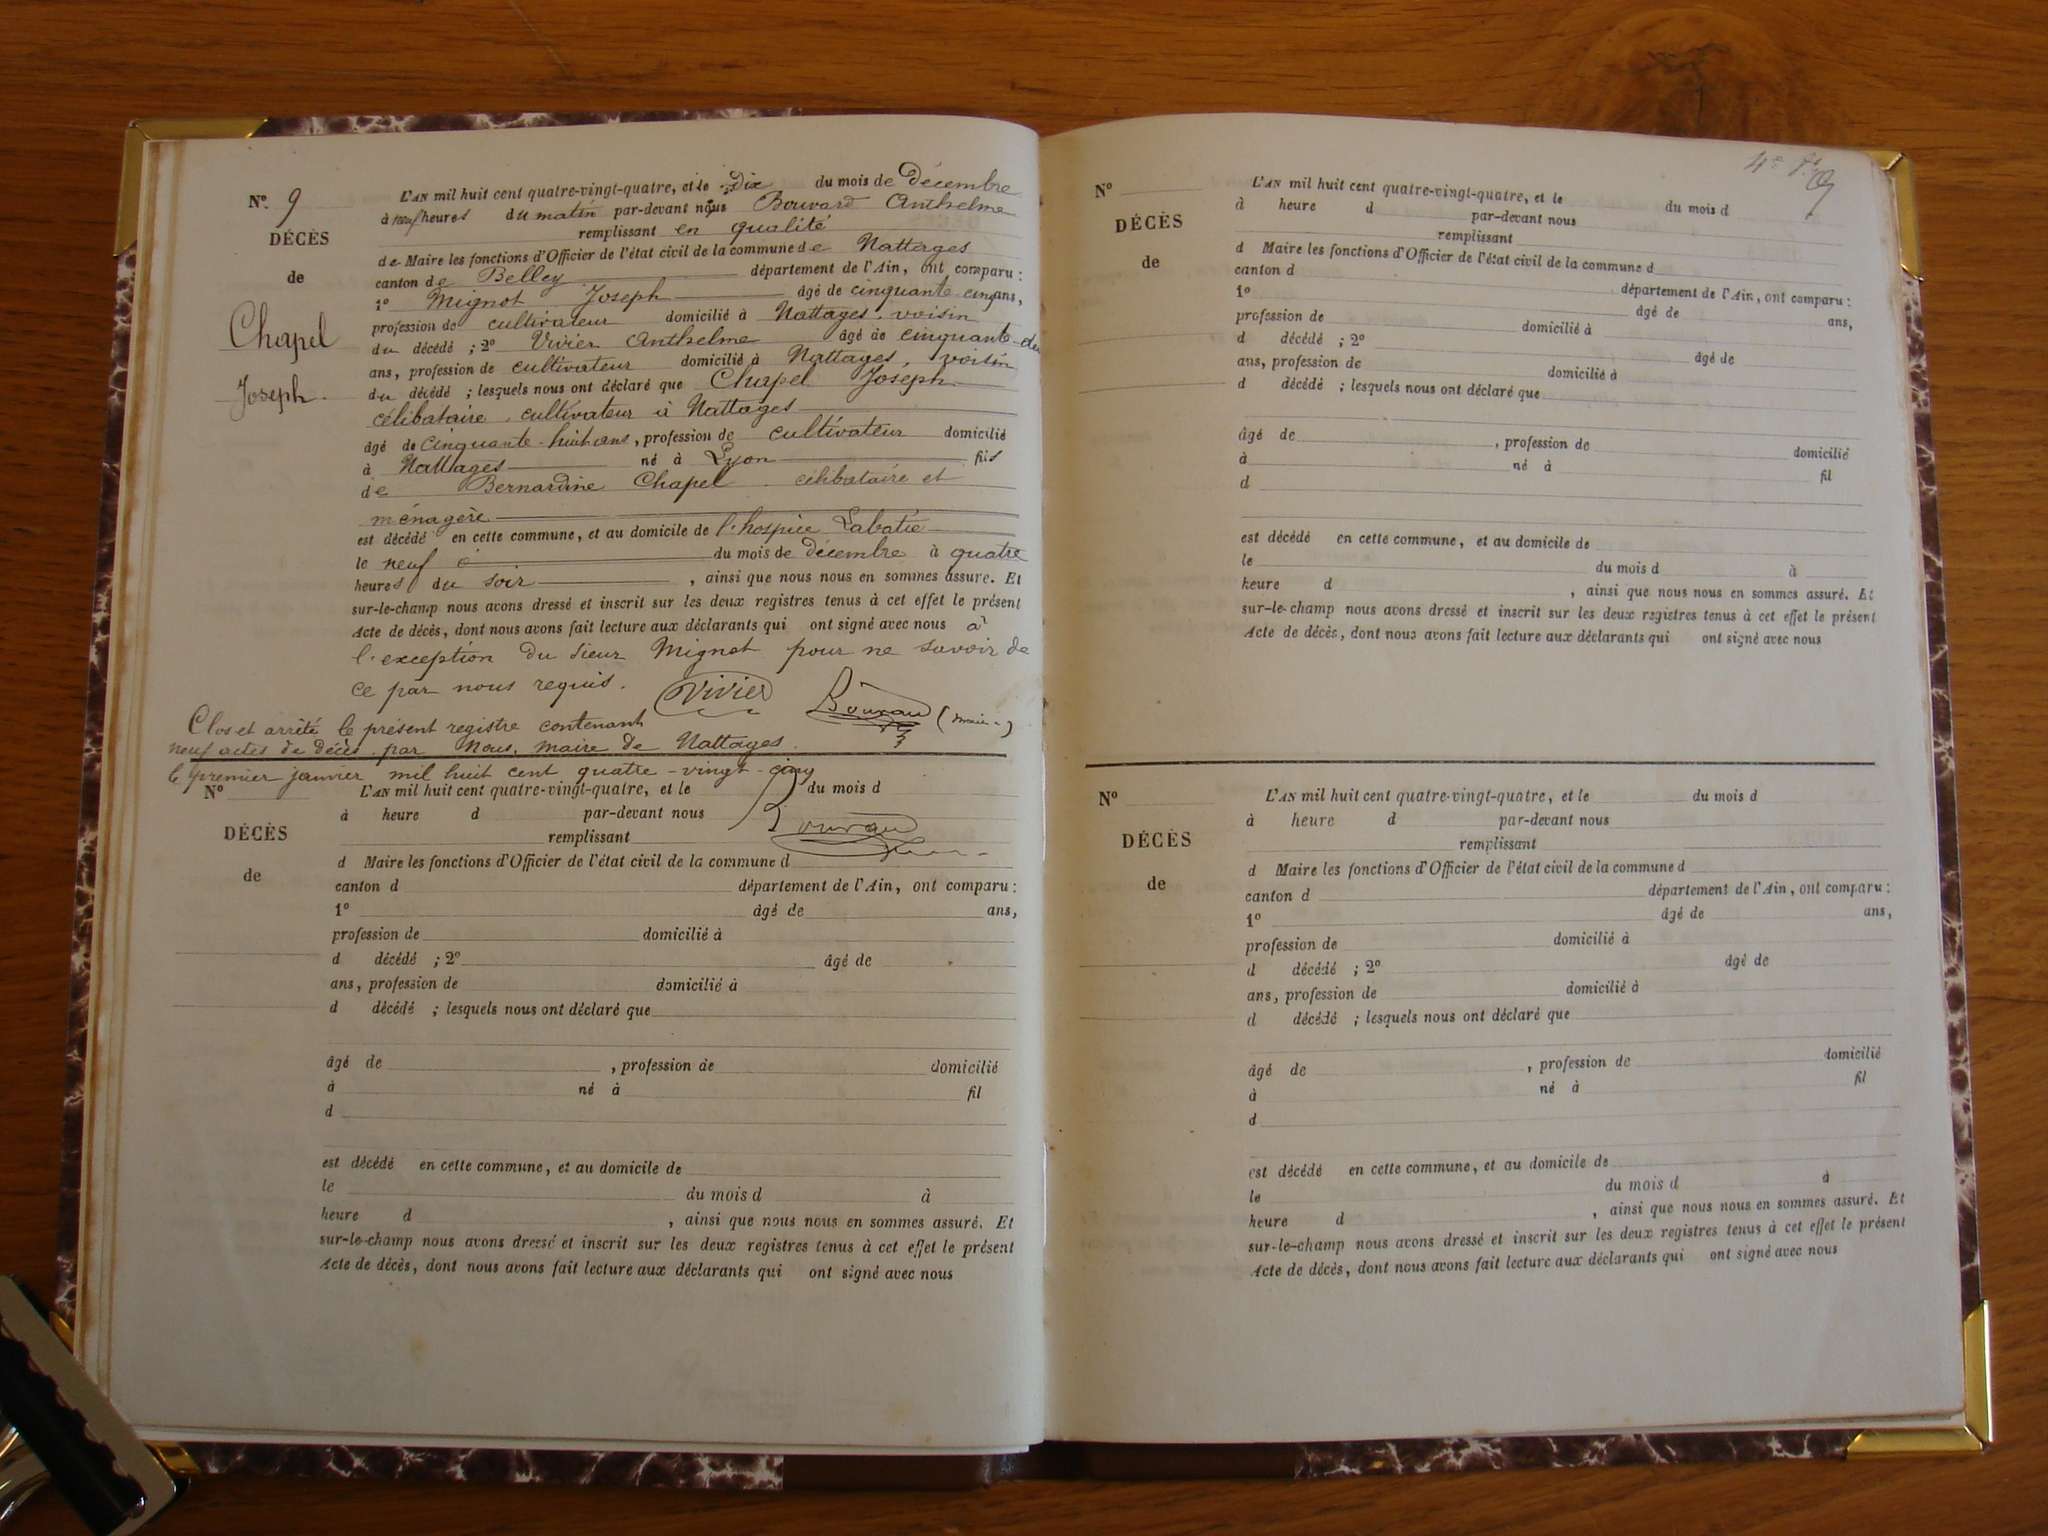 Nº. 9
DÉCÈS
de
Chapel
Joseph.
L'AN mil huit cent quatre-vingt-quatre, et le dix du mois de décembre
à neuf heures du matin par-devant nous Bouvard Anthelme
remplissant en qualité
de Maire les fonctions d'Officier de l'état civil de la commune de Nattages
canton de Belley département de l'Ain, ont comparu :
1º Mignot Joseph âgé de cinquante cinq ans,
profession de cultivateur domicilié à Nattages, voisin
du décédé ; 2º Vivier Anthelme âgé de cinquante-
ans, profession de cultivateur domicilié à Nattages, voisin
du décédé ; lesquels nous ont déclaré que Chapel Joseph
célibataire, cultivateur à Nattages
âgé de cinquante-huit ans, profession de cultivateur domicilié
à Nattages né à Lyon fils
de Bernardine Chapel célibataire et
ménagère
est décédé en cette commune, et au domicile de l'hospice Labatie
le neuf du mois de décembre à quatre
heures du soir , ainsi que nous nous en sommes assuré. Et
sur-le-champ nous avons dressé et inscrit sur les deux registres tenus à cet effet le présent
Acte de décès, dont nous avons fait lecture aux déclarants qui ont signé avec nous à
l'exception du sieur Mignot pour ne savoir de
ce par nous requis. Vivier Bouvard (maire)
Clos et arrêté le présent registre contenant
neuf actes de décès par Nous, maire de Nattages
le premier janvier mil huit cent quatre-vingt-cinq
Bouvard
Nº
DÉCÈS
de
L'AN mil huit cent quatre-vingt-quatre, et le du mois d
à heure d par-devant nous
remplissant
d Maire les fonctions d'Officier de l'état civil de la commune d
canton d département de l'Ain, ont comparu :
1º âgé de ans,
profession de domicilié à
d décédé ; 2º âgé de
ans, profession de domicilié à
d décédé ; lesquels nous ont déclaré que
âgé de , profession de domicilié
à né à fil
d
est décédé en cette commune, et au domicile de
le du mois d à
heure d , ainsi que nous nous en sommes assuré. Et
sur-le-champ nous avons dressé et inscrit sur les deux registres tenus à cet effet le présent
Acte de décès, dont nous avons fait lecture aux déclarants qui ont signé avec nous
Nº
DÉCÈS
de
L'AN mil huit cent quatre-vingt-quatre, et le du mois d
à heure d par-devant nous
remplissant
d Maire les fonctions d'Officier de l'état civil de la commune d
canton d département de l'Ain, ont comparu :
1º âgé de ans,
profession de domicilié à
d décédé ; 2º âgé de
ans, profession de domicilié à
d décédé ; lesquels nous ont déclaré que
âgé de , profession de domicilié
à né à fil
d
est décédé en cette commune, et au domicile de
le du mois d à
heure d , ainsi que nous nous en sommes assuré. Et
sur-le-champ nous avons dressé et inscrit sur les deux registres tenus à cet effet le présent
Acte de décès, dont nous avons fait lecture aux déclarants qui ont signé avec nous
Nº
DÉCÈS
de
L'AN mil huit cent quatre-vingt-quatre, et le du mois d
à heure d par-devant nous
remplissant
d Maire les fonctions d'Officier de l'état civil de la commune d
canton d département de l'Ain, ont comparu :
1º âgé de ans,
profession de domicilié à
d décédé ; 2º âgé de
ans, profession de domicilié à
d décédé ; lesquels nous ont déclaré que
âgé de , profession de domicilié
à né à fil
d
est décédé en cette commune, et au domicile de
le du mois d à
heure d , ainsi que nous nous en sommes assuré. Et
sur-le-champ nous avons dressé et inscrit sur les deux registres tenus à cet effet le présent
Acte de décès, dont nous avons fait lecture aux déclarants qui ont signé avec nous